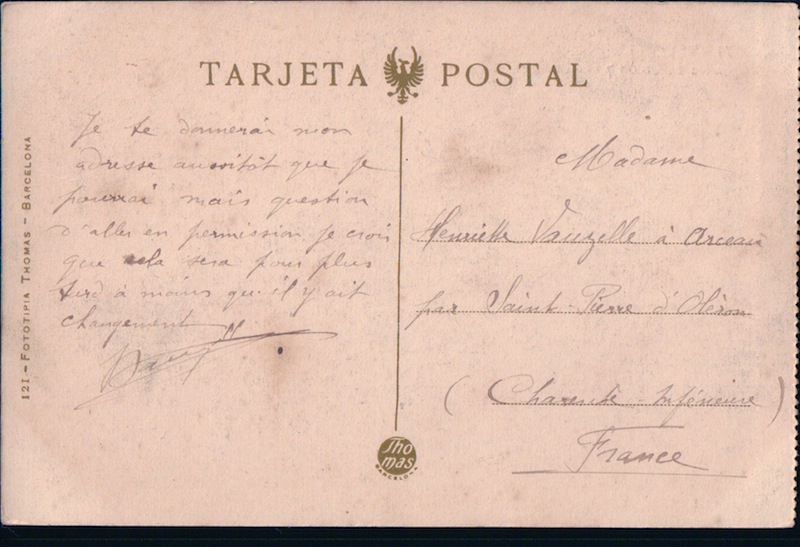 TARJETA POSTAL
Je te donnerai mon
adresse aussitôt que je
pourrai mais question
d'aller en permission je crois
que cela sera pour plus
tard à moins qu'il y ait
changement
Madame
Henriette Vauzelle à Arceau
par Saint-Pierre d'Oléron
(Charente-Inférieure)
France
121 - FOTOTIPIA THOMAS - BARCELONA
Thomas
BARCELONA